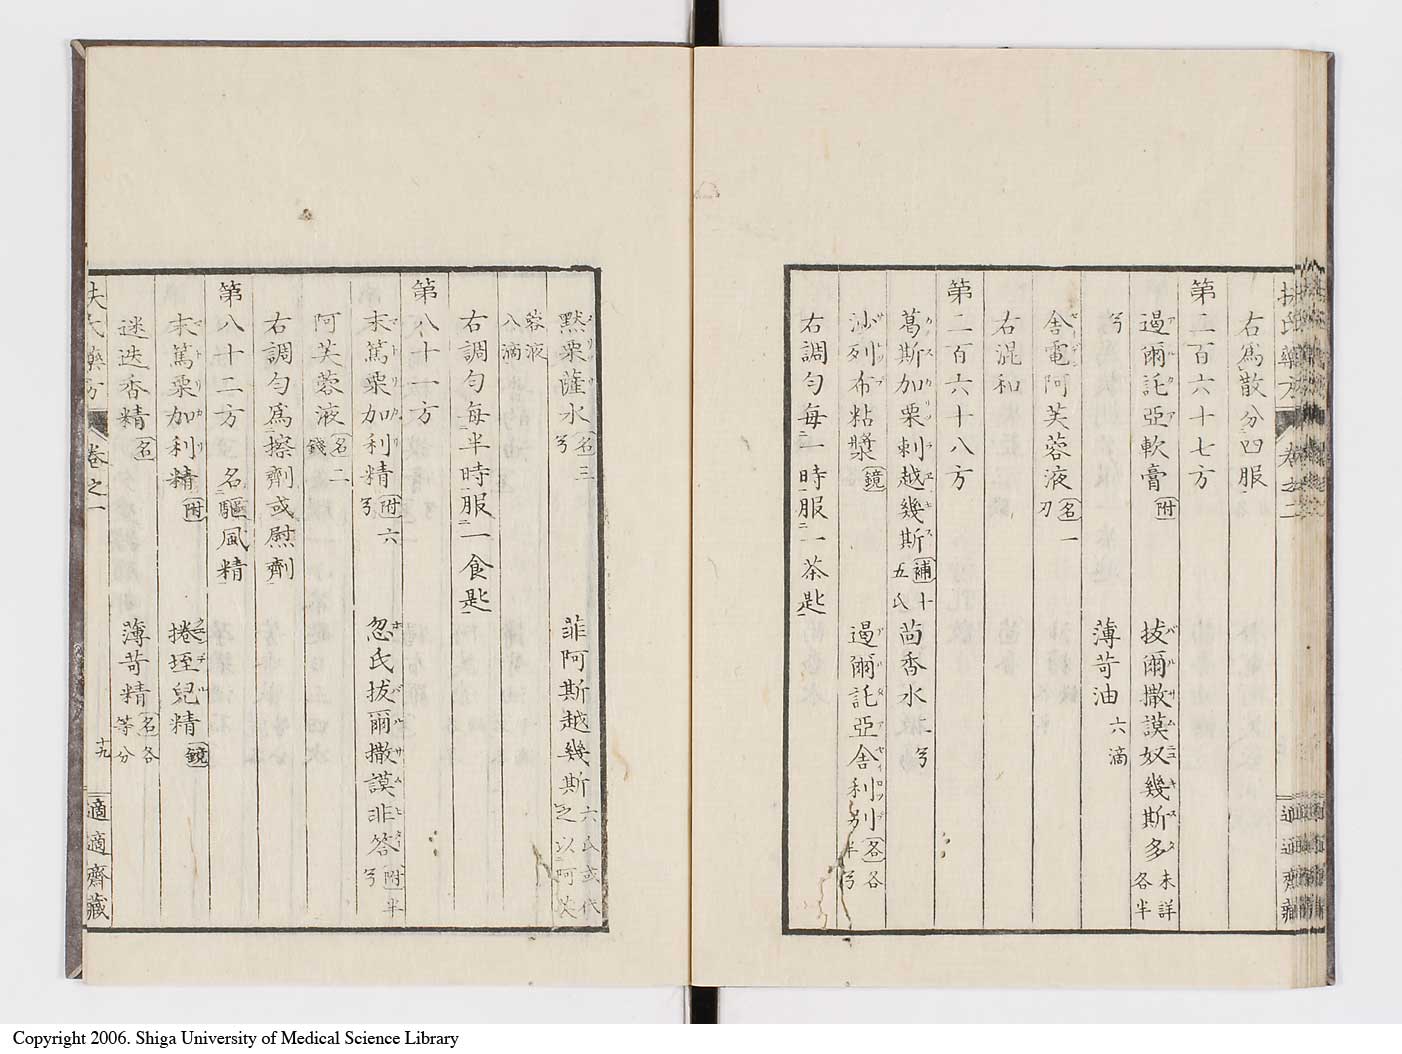 扶氏藥方 卷之二
右爲散分四服
第二百六十七方
遏爾託亞軟膏 附 拔爾撒謨奴幾斯多 未詳 各半
ゟ 薄苛油 六滴
舎電阿芙蓉液 名 一刃
右混和
第二百六十八方
葛斯加栗剌越幾斯 補 十五氏 茴香水 二ゟ
沙列布粘漿 鏡 遏爾託亞舎利別 名 各半ゟ
右調勻每一時服一茶匙
黙栗薩水 名 三ゟ 菲阿斯越幾斯 六氏或代之以阿芙
蓉液八滴
右調勻每半時服一食匙
第八十一方
末篤栗加利精 附 六ゟ 忽氏拔爾撒謨非答 附 半ゟ
阿芙蓉液 名 二錢
右調勻爲擦劑或慰劑
第八十二方 名驅風精
末篤栗加利精 附 捲垤兒精 鏡
迷迭香精 名 薄苛精 名 各等分
扶氏藥方 卷之一 十九 適適齋藏
Copyright 2006. Shiga University of Medical Science Library